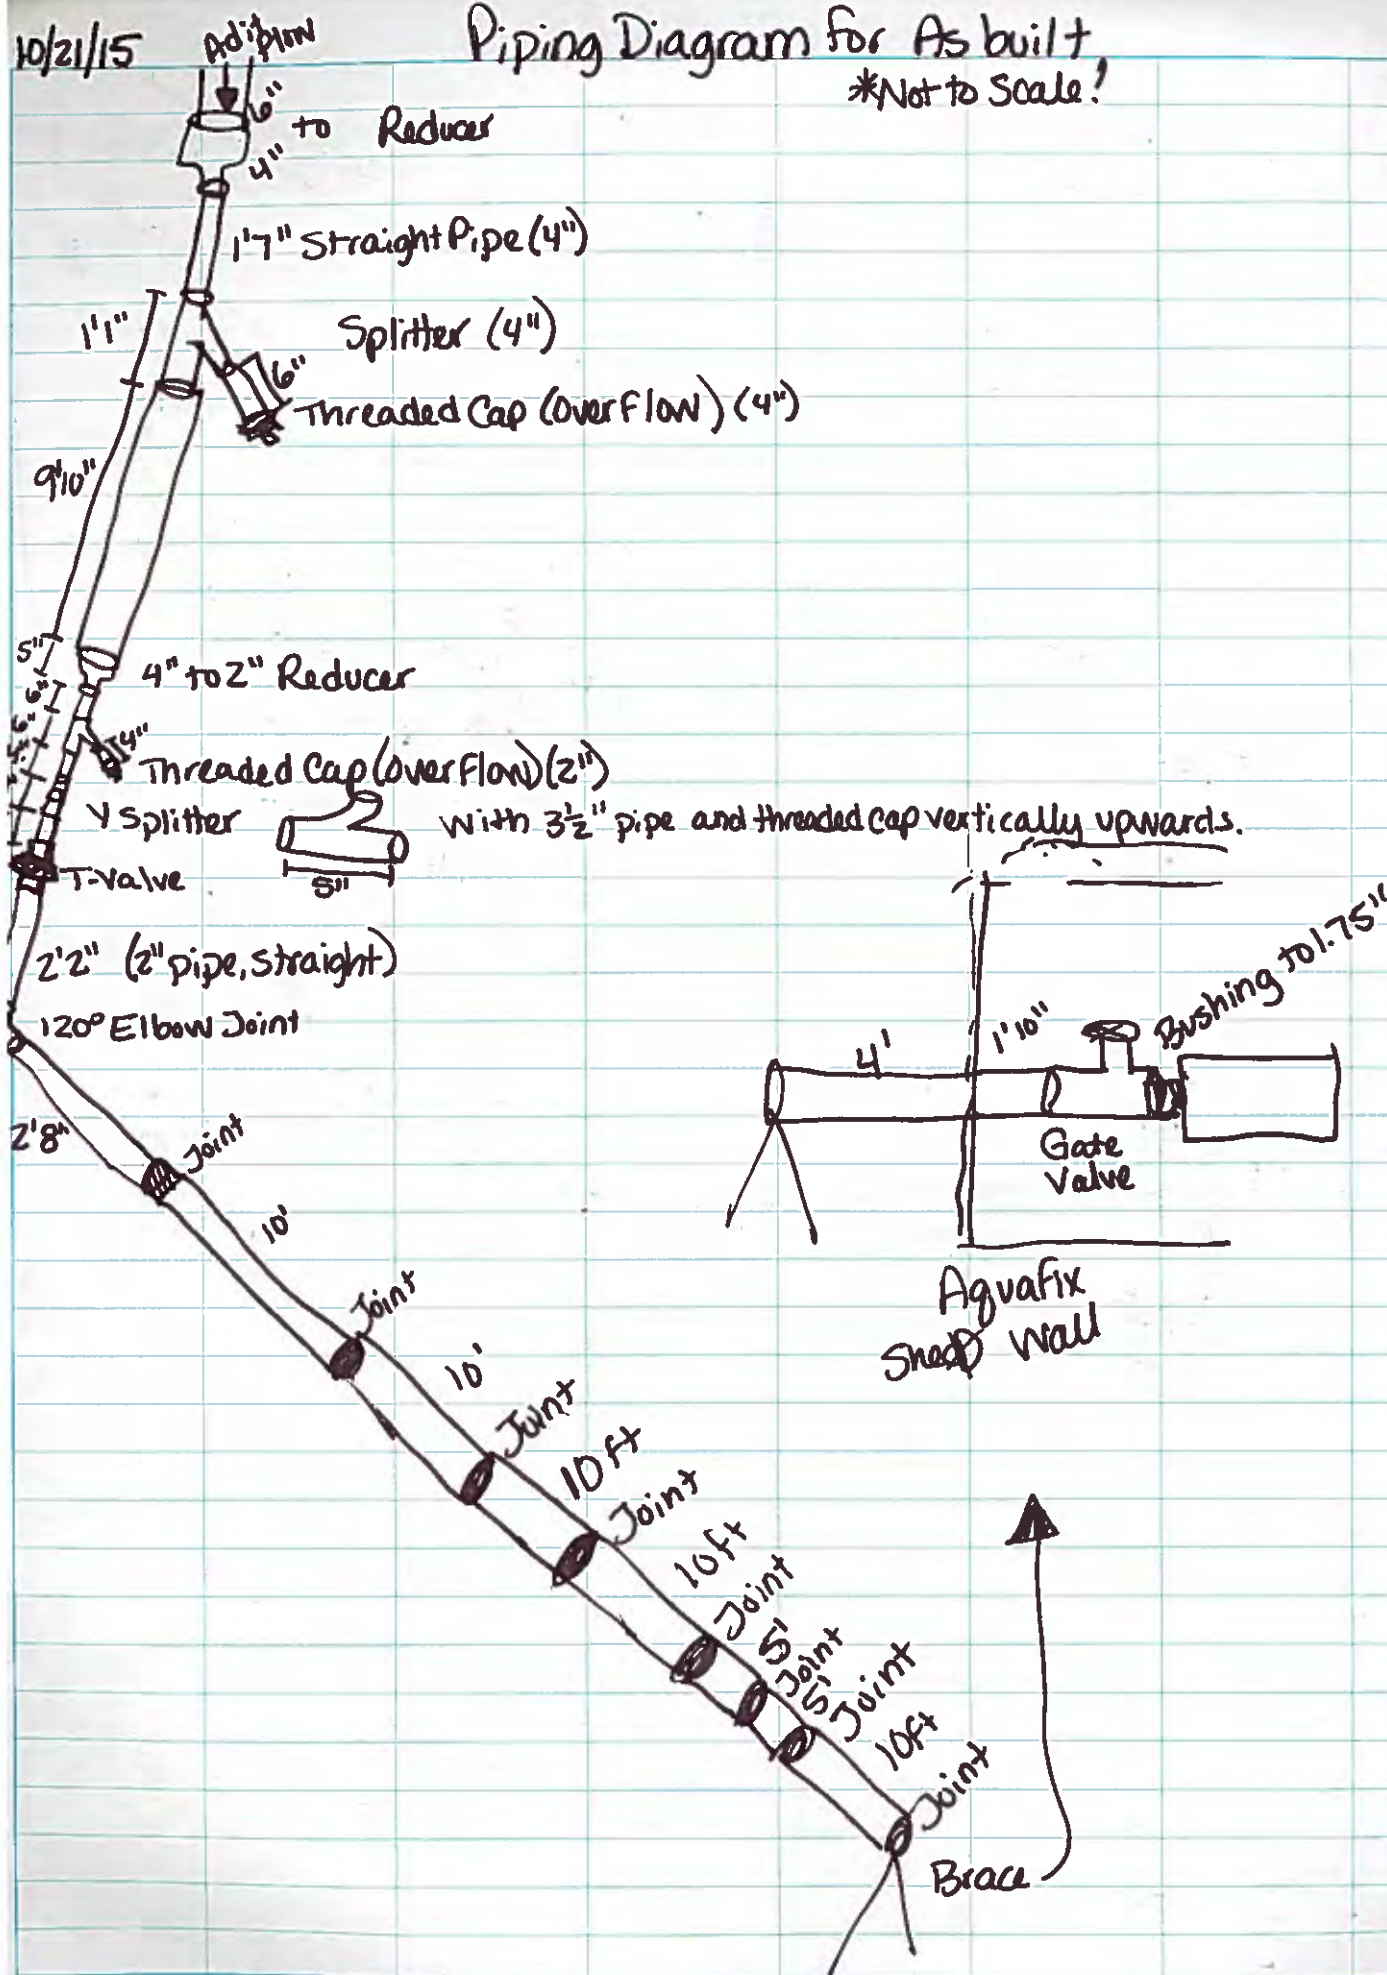 10/21/15
Piping Diagram for As built,
*Not to Scale!
6"
to Reducer
4"
1'7" Straight Pipe (4")
1'1"
Splitter (4")
6"
Threaded Cap (OverFlow) (4")
9'10"
5"
4" to 2" Reducer
6"
6"
4"
Threaded Cap (OverFlow) (2")
Y Splitter
With 3½" pipe and threaded cap vertically upwards.
T-Valve
2'2" (2" pipe, straight)
120° Elbow Joint
2'8"
Joint
10'
Joint
10'
Joint
10ft
Joint
10ft
Joint
5'
Joint
5'
Joint
10ft
Joint
Brace
4'
1'10"
Bushing to 1.75"
Gate
Valve
Aquafix
Shed Wall